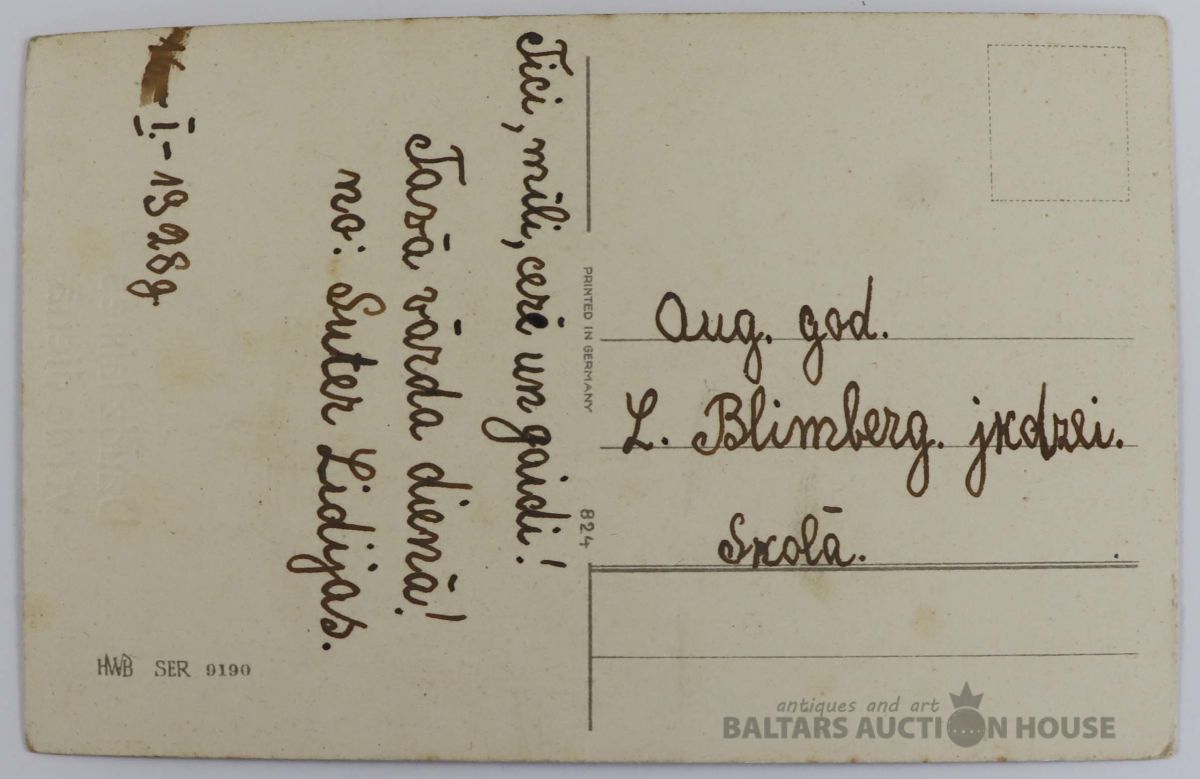 Tici, mīli, cerē un gaidi!
Tavā vārda dienā!
no: Suter Lidijas.
I.-1928g
HWB SER 9190
PRINTED IN GERMANY
824
Aug. god.
L. Blimberg. jkdzei.
Skolā.
antiques and art
BALTARS AUCTION HOUSE